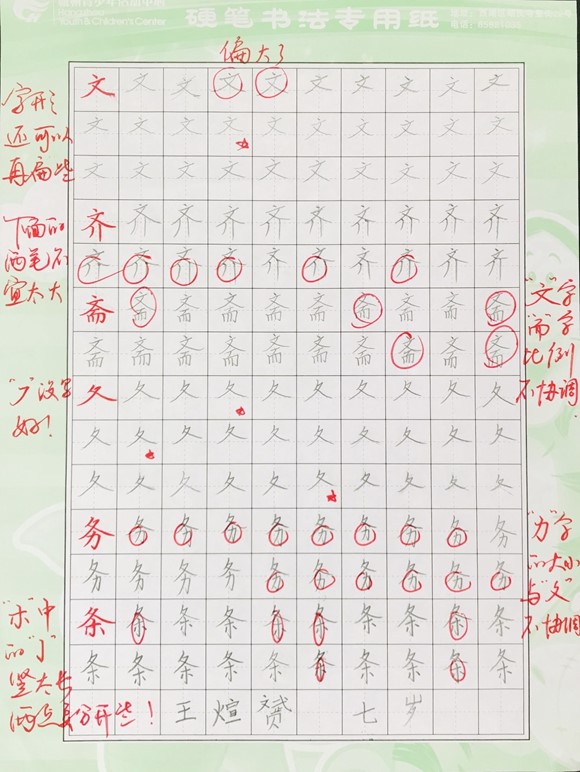 Youth & Children's Center
硬笔书法专用纸
偏大了
文文文文文文文文文文
文文文文文文文文文文
文文文文文文文文文文
齐齐齐齐齐齐齐齐齐齐
齐齐齐齐齐齐齐齐齐齐
斋斋斋斋斋斋斋斋斋斋
斋斋斋斋斋斋斋斋斋斋
夂夂夂夂夂夂夂夂夂夂
夂夂夂夂夂夂夂夂夂夂
夂夂夂夂夂夂夂夂夂夂
务务务务务务务务务务
务务务务务务务务务务
条条条条条条条条条条
条条条条条条条条条条
王煊赟 七岁
字形
还可以
再扁些
下面的
两笔不
宜太大
"文"字
"而"字
比例
不协调
"丿"没写
好!
"力"字
的大小
与"夂"
不协调
"朩"中
的"亅"
竖太长
两点要分开些!